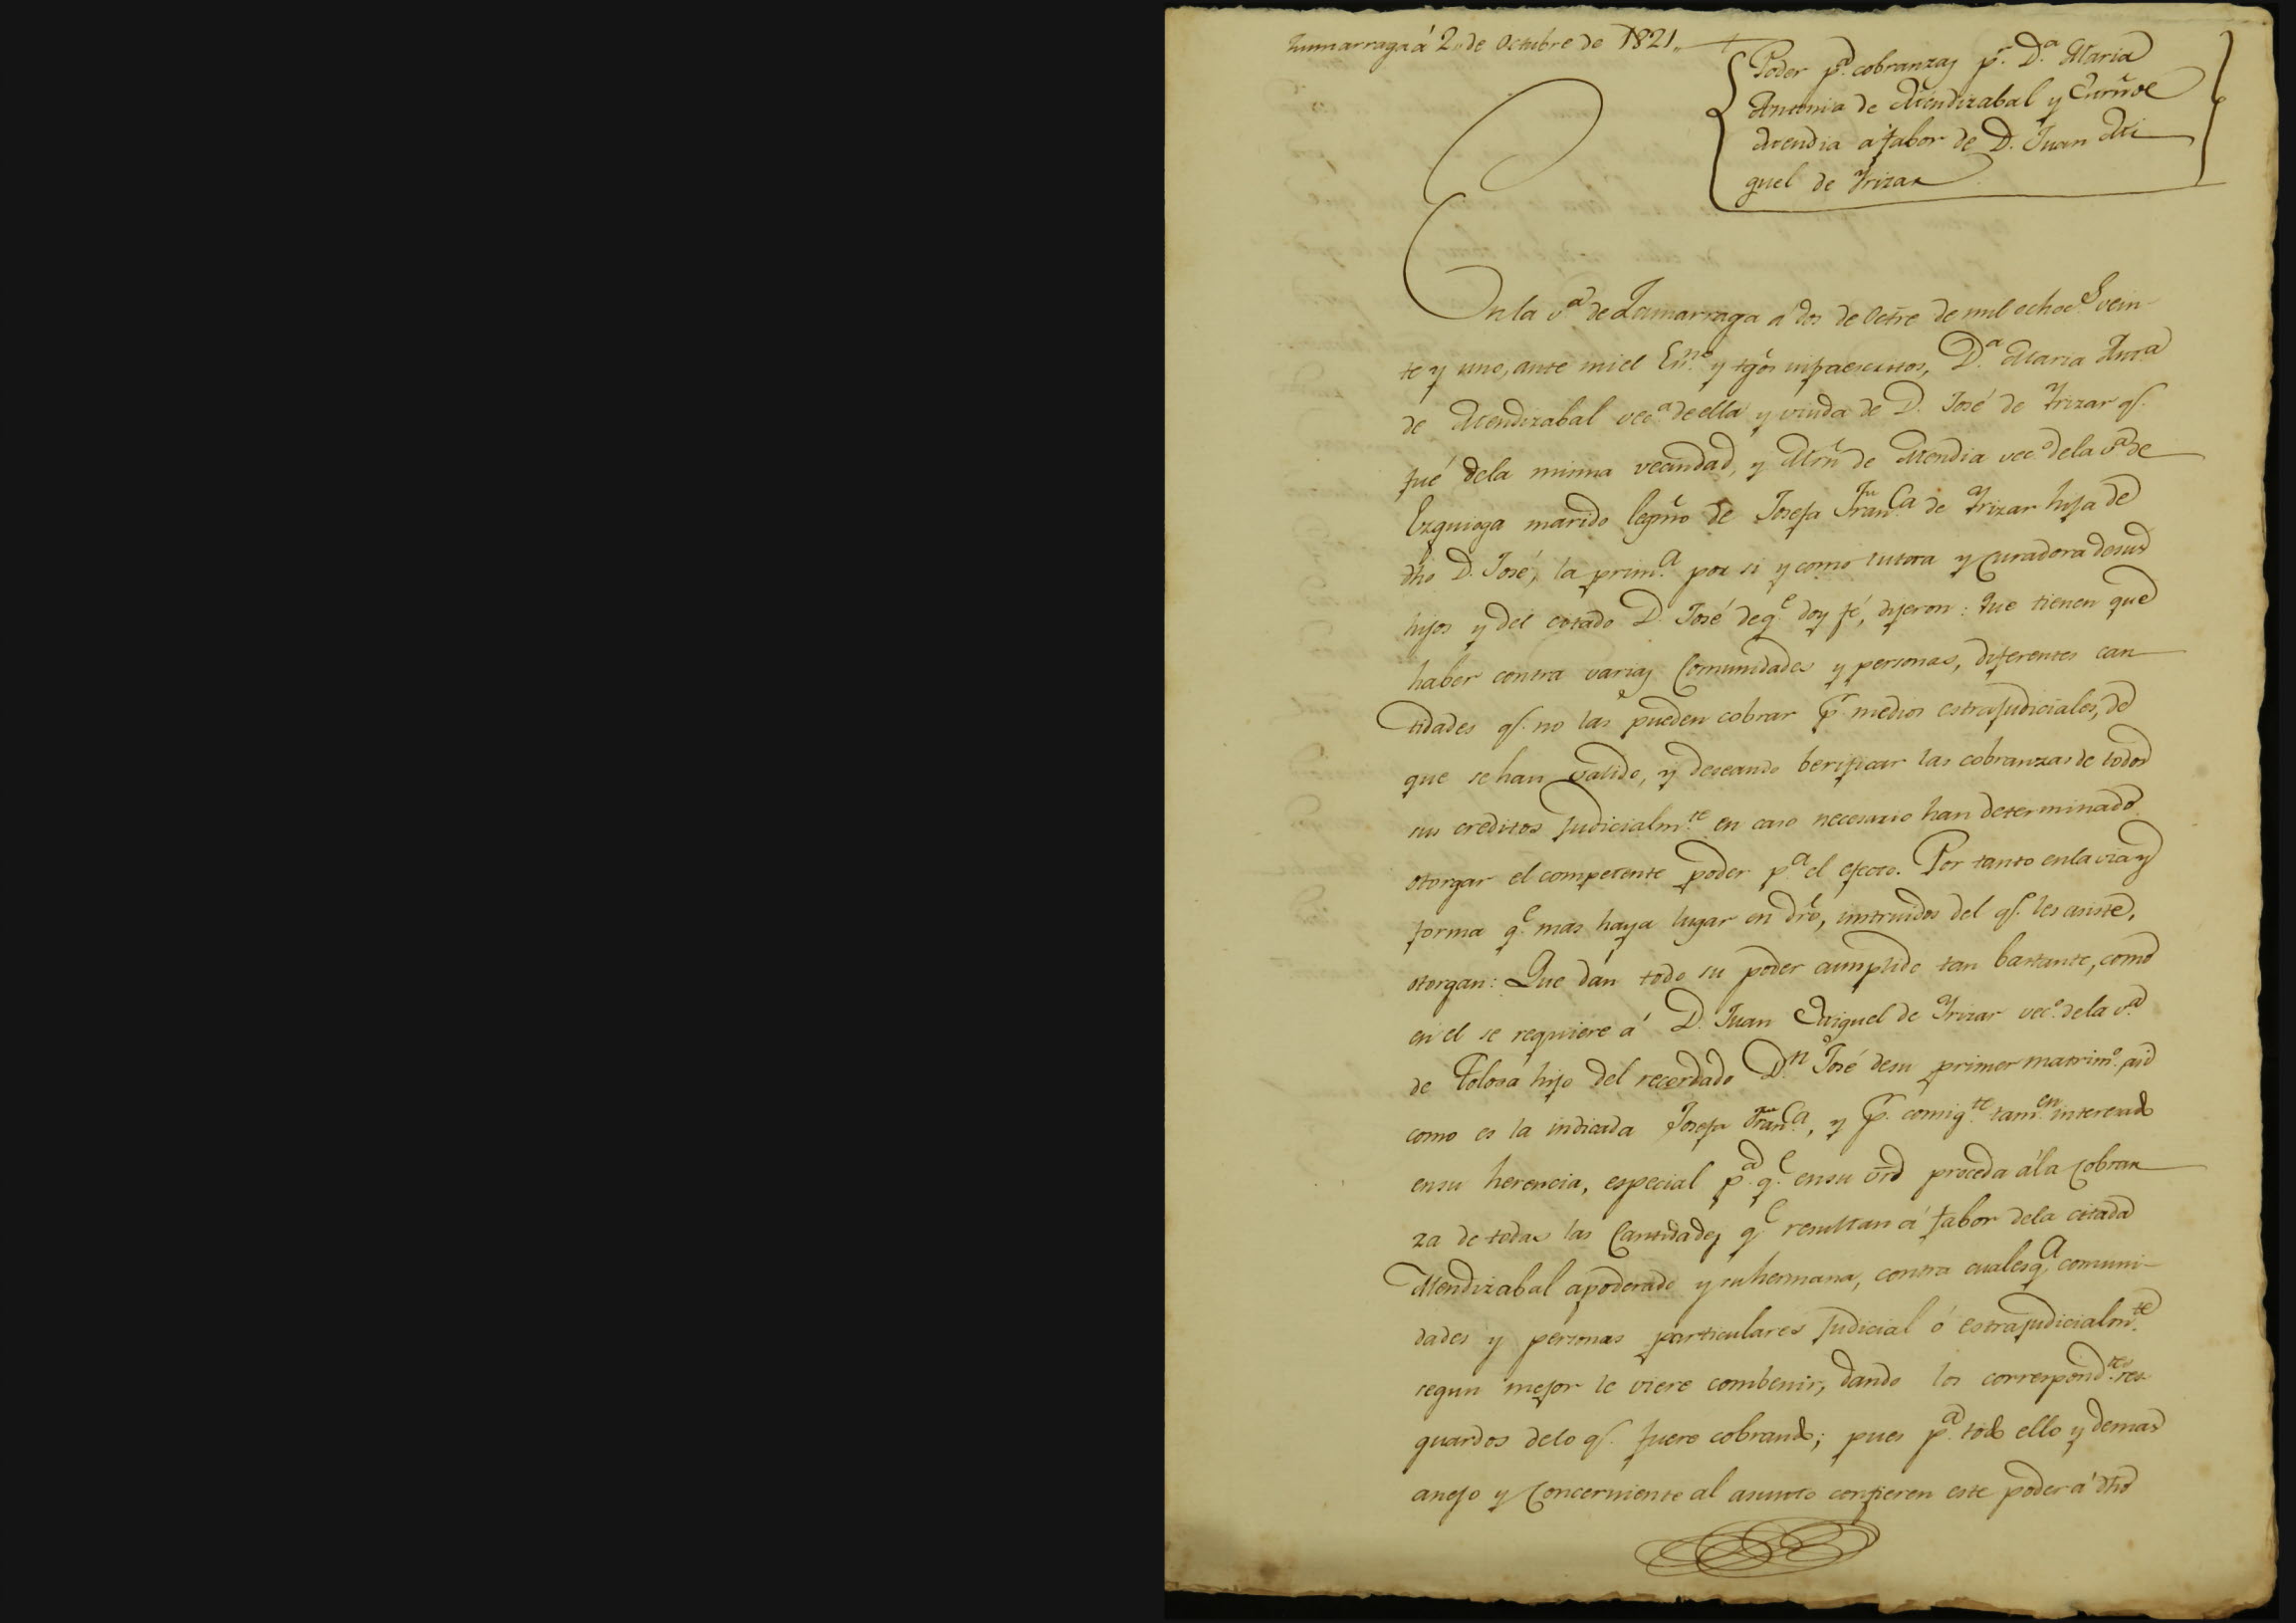 Zumarraga á 2,, de Octubre de 1821,,
Poder p.ª cobranzas p.r D.ª Maria
Antonia de Mendizabal y
Mendia a fabor de D. Juan Mi
guel de Yrizar
En la v.ª de Zumarraga á dos de Octre de mil ochoc.s vein-
te y uno, ante mi el Es.no y tgos infraescritos, D.ª Maria Ant.ª
de Mendizabal vec.ª de ella y viuda de D. José de Yrizar q.e
fué dela misma vecindad, y Mrn de Mendia vec.º dela v.ª de
Ezquioga marido legmo de Josefa Fran.ca de Yrizar hija de
dho D. José, la prim.ª por si y como tutora y Curadora desus
hijos y del citado D. José deq.e doy fé, dijeron: Que tienen que
haber contra varias Comunidades y personas, diferentes can
tidades q.e no las pueden cobrar p.r medios estrajudiciales, de
que se han valido, y deseando berificar las cobranzas de todos
sus creditos Judicialm.te en caso necesario han determinado
otorgar el competente poder p.ª el efecto. Por tanto enla via y
forma q.e mas haya lugar en dro, instruidos del q.e les asiste,
otorgan: Que dán todo su poder cumplido tan bastante, como
en el se requiere á D. Juan Miguel de Yrizar vec.º dela v.ª
de Tolosa hijo del recordado D.n José desu primer matrim.º asi
como es la indicada Josefa Fran.ca, y p.r consig.te tam.en interesado
ensu herencia, especial p.ª q.e ensu vrd proceda ála Cobran
za de todas las Cantidades q.e resultan á fabor dela citada
Mendizabal apoderado y su hermana, contra cualesq.ª comuni-
dades y personas particulares Judicial ó estrajudicialm.te
segun mejor le viere combenir, dando los correspond.tes res-
guardos delo q.e fuere cobrando; pues p.ª todo ello y demas
anejo y Concerniente al asunto confieren este poder á dho